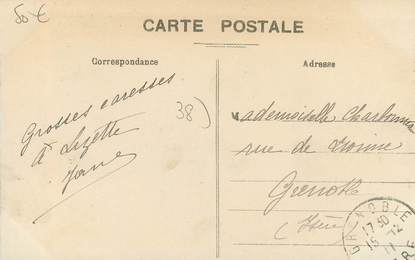 50 €
CARTE POSTALE
Correspondance
Adresse
Grosses caresses
à Lizette
38)
Mademoiselle
rue de
Grenoble
(Isère)
GRENOBLE